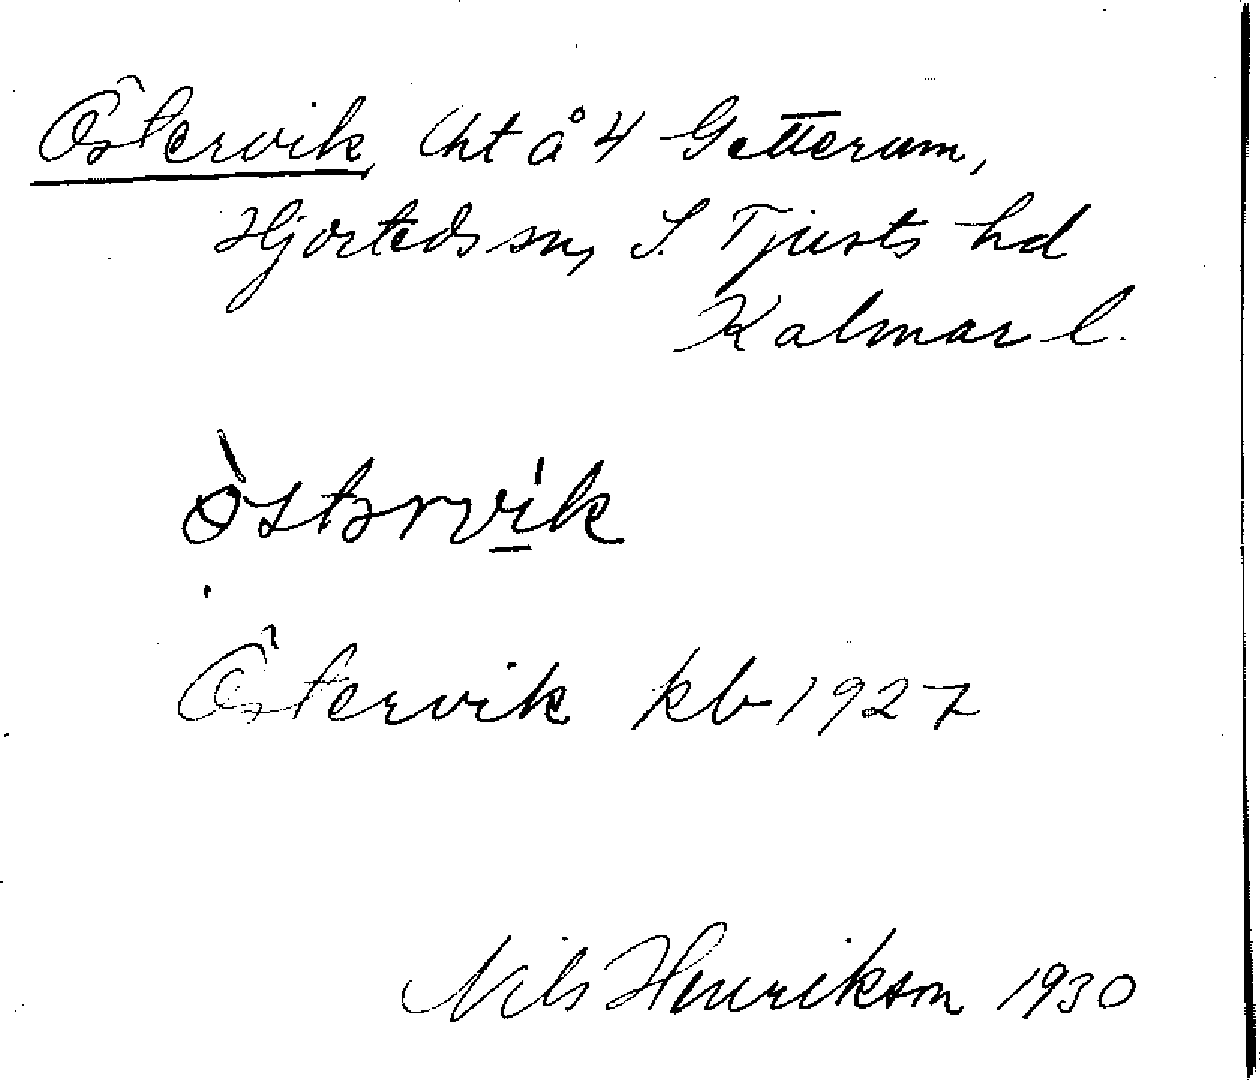 Östervik, lht å 4 Getterum,
Hjorteds sn, S. Tjusts hd
Kalmar l.
Östervik kb 1927
Nils Henrikson 1930